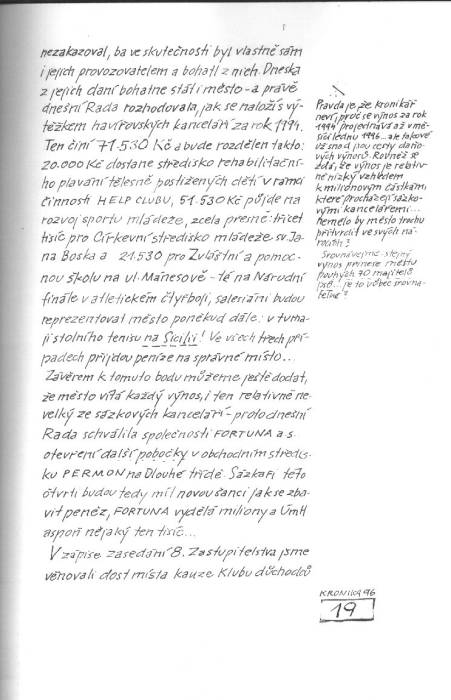 nezakazoval, ba ve skutečnosti byl vlastně sám
i jejich provozovatelem a bohatl z nich. Dneska
z jejich daní bohatne stát i město - a právě
dnešní Rada rozhodovala, jak se naloží s vý-
těžkem havířovských kanceláří za rok 1994.
Ten činí 71.530 Kč a bude rozdělen takto:
20.000 Kč dostane středisko rehabilitační-
ho plavání tělesně postižených dětí v rámci
činnosti HELP CLUBU, 51.530 Kč půjde na
rozvoj sportu mládeže, zcela přesně: třicet
tisíc pro Církevní středisko mládeže sv. Ja-
na Boska a 21.530 pro Zvláštní a pomoc-
nou školu na ul. Mánesově - té na Národní
finále v atletickém čtyřboji, saleriáni budou
reprezentovat město poněkud dále: v turna-
ji stolního tenisu na Sicílii! Ve všech třech pří-
padech přijdou peníze na správné místo...
Závěrem k tomuto bodu můžeme ještě dodat,
že město vítá každý výnos, i ten relativně ne-
velký ze sázkových kanceláří - proto dnešní
Rada schválila společnosti FORTUNA a.s.
otevření další pobočky v obchodním středis-
ku PERMON na Dlouhé třídě. Sázkaři této
čtvrti budou tedy mít novou šanci jak se zba-
vit peněz, FORTUNA vydělá miliony a ÚMH
aspoň nějaký ten tisíc...
V zápise zasedání 8. Zastupitelstva jsme
věnovali dost místa kauze Klubu důchodců
Pravda je, že kronikář
neví, proč se výnos za rok
1994 projednává až v mě-
síci lednu 1996... ale takové
už snad jsou cesty daňo-
vých výnosů. Rovněž se
zdá, že výnos je relativ-
ně nízký vzhledem
k milionovým částkám,
které procházejí sázko-
vými kancelářemi...
nemělo by město trochu
přitvrdit ve svých ná-
rocích?
Srovnávejme: stejný
výnos přinese městu
pouhých 70 majitelů
psů... je to vůbec srovna-
telné?
KRONIKA 96
19